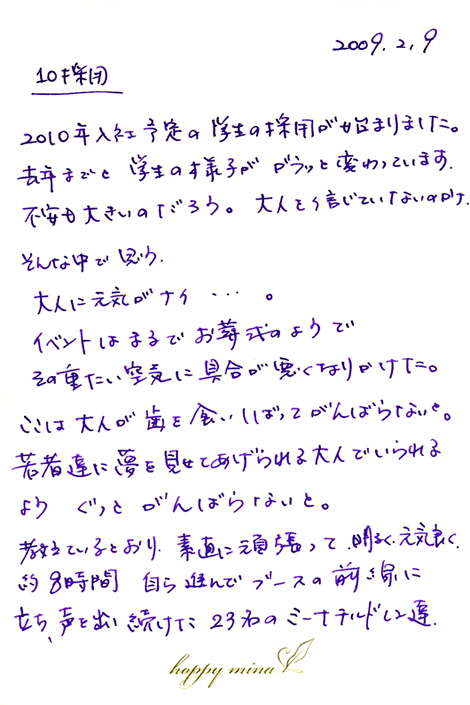 2009.2.9
10採用
2010年入社予定の学生の採用が始まりました。
去年までと学生の様子がガラッと変わっています.
不安も大きいのだろう。大人を信じていないのか.
そんな中で思う.
大人に元気がナイ…。
イベントはまるでお葬式のようで
その重たい空気に具合が悪くなりかけた。
ここは大人が歯を食いしばってがんばらないと。
若者達に夢を見せてあげられる大人でいられる
よう ぐっとがんばらないと。
教えているとおり. 素直に頑張って. 明るく.元気良く.
約8時間 自ら進んでブースの前線に
立ち、声を出し続けた 23名のミーナチルドレン達.
happy mina